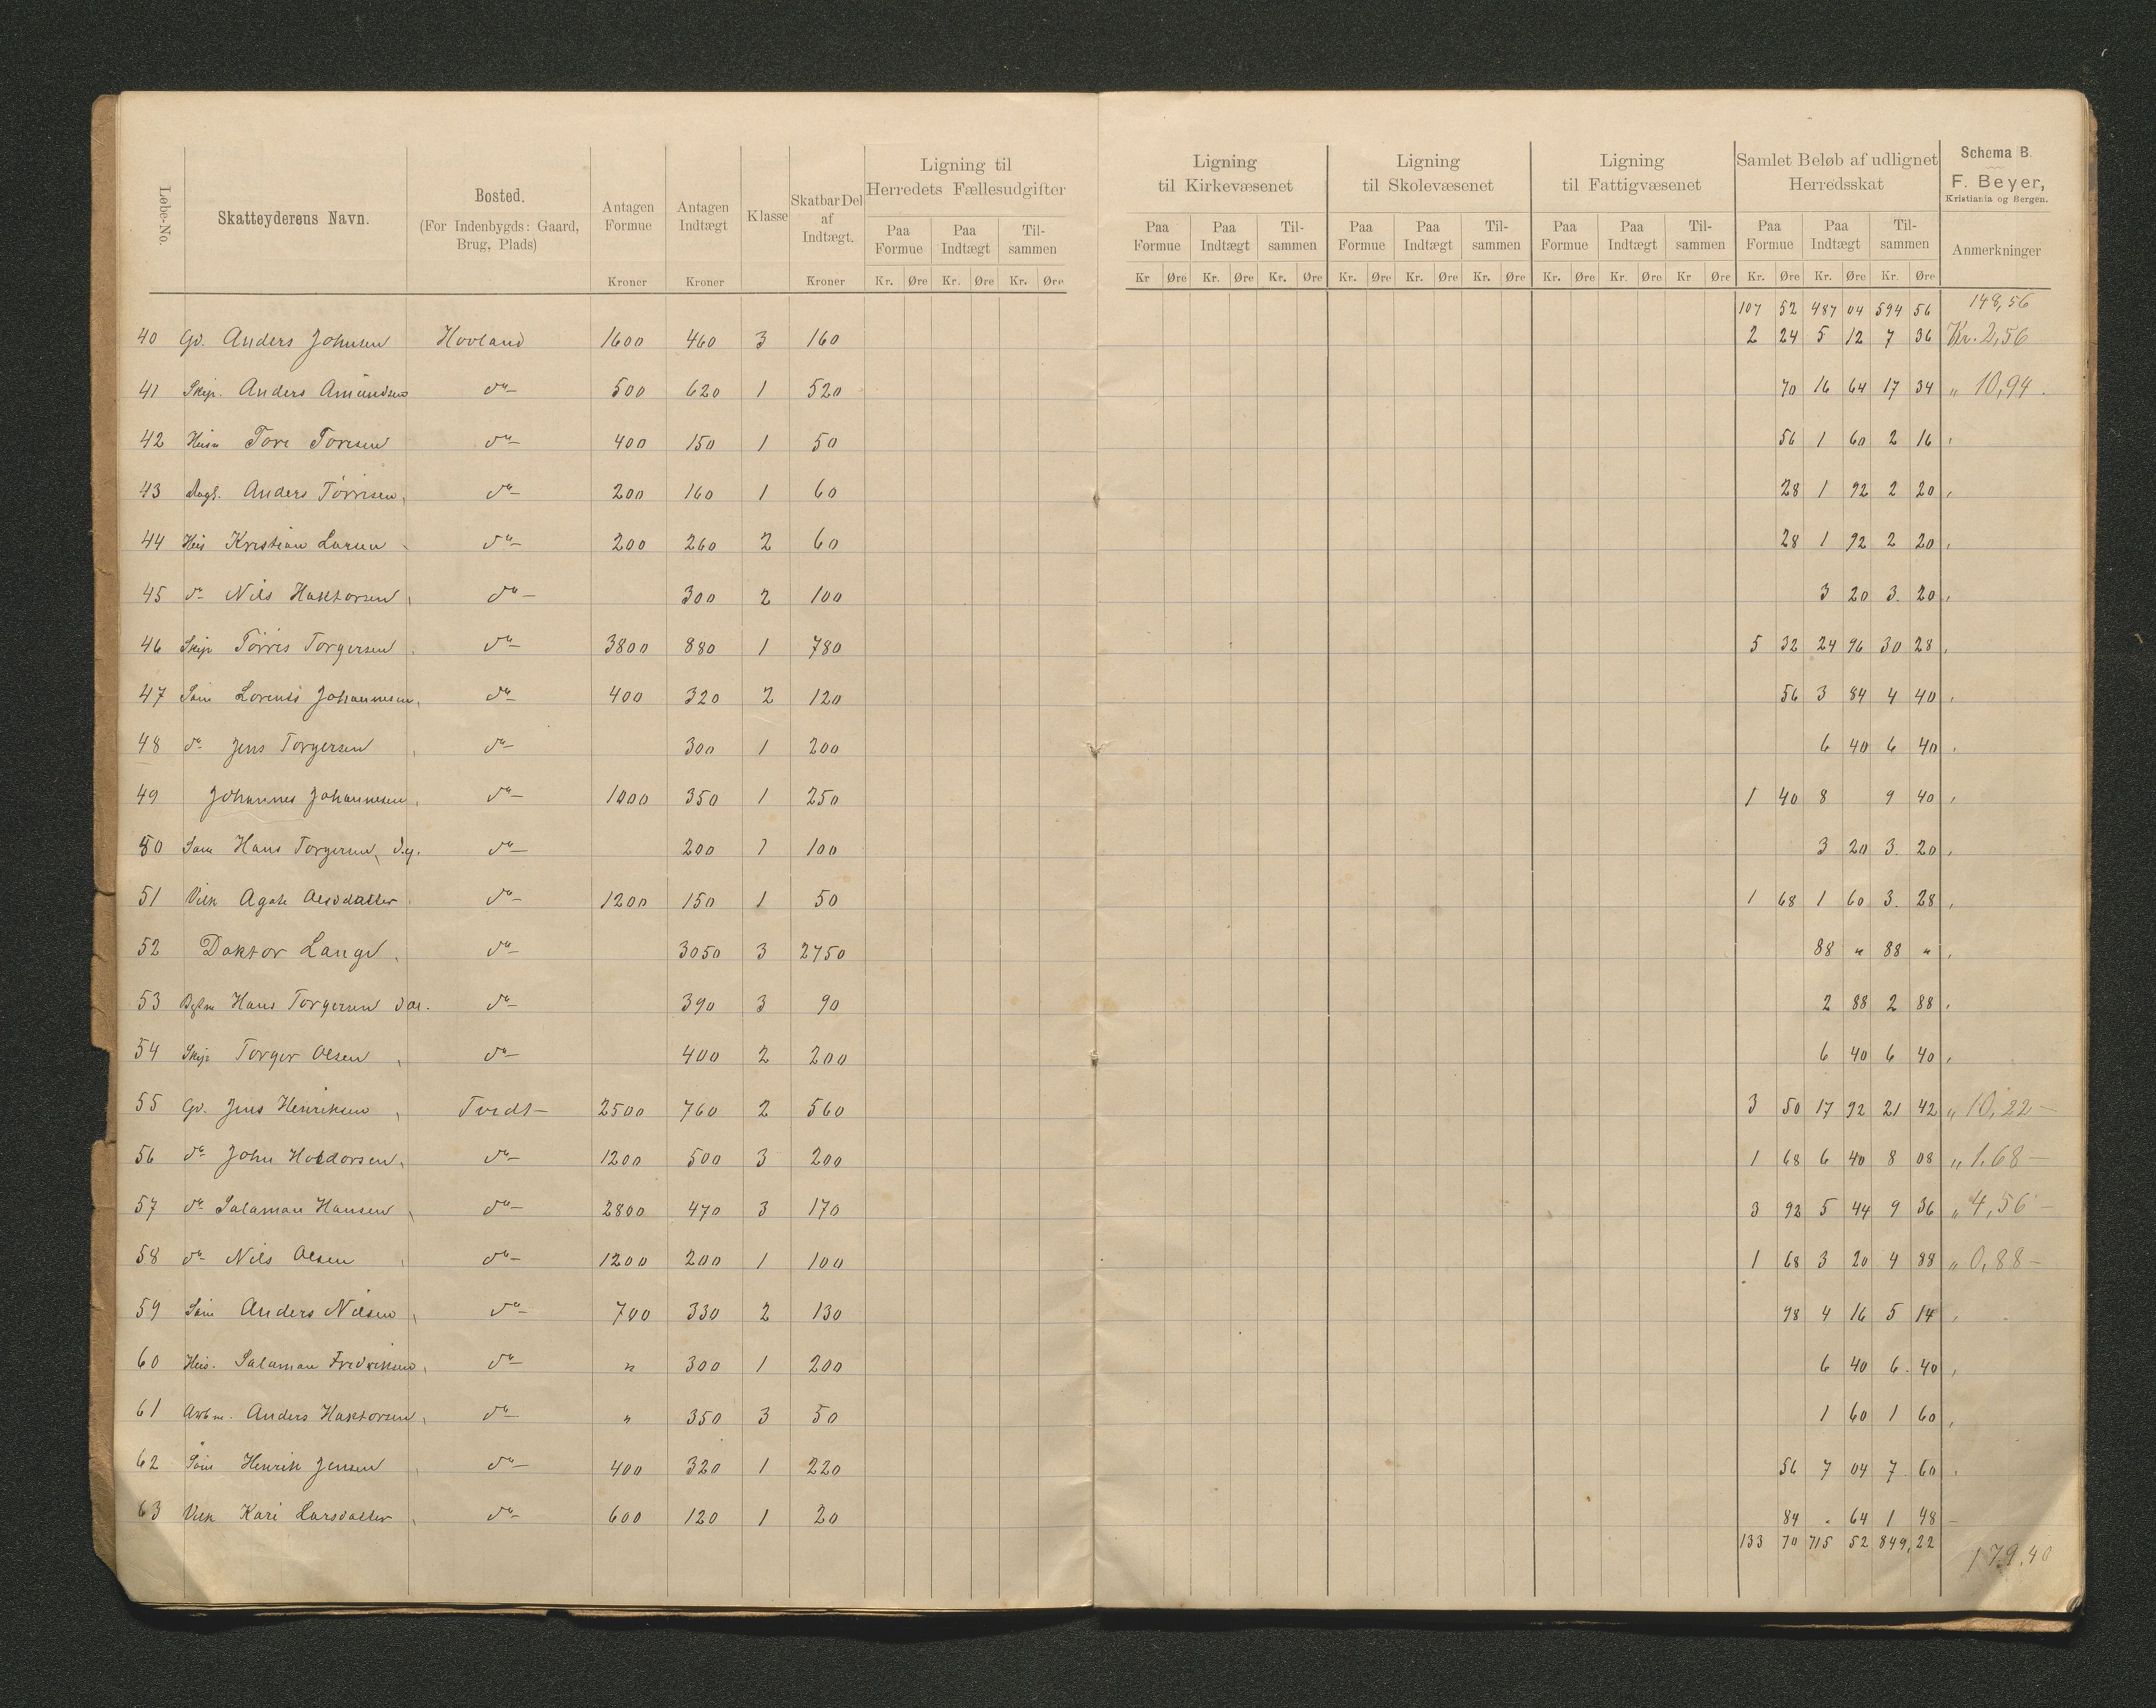 Løbe-No. Skatteyderens Navn. Bosted. (For Indenbygds: Gaard, Brug, Plads) Antagen Formue Kroner Antagen Indtægt Kroner Klasse Skatbar Del af Indtægt. Kroner Ligning til Herredets Fællesudgifter Paa Formue Paa Indtægt Tilsammen Kr. Øre Kr. Øre Kr. Øre
Ligning til Kirkevæsenet Paa Formue Paa Indtægt Tilsammen Kr Øre Kr. Øre Kr. Øre
Ligning til Skolevæsenet Paa Formue Paa Indtægt Tilsammen Kr. Øre Kr. Øre Kr. Øre
Ligning til Fattigvæsenet Paa Formue Paa Indtægt Tilsammen Kr. Øre Kr. Øre Kr Øre
Samlet Beløb af udlignet Herredsskat Paa Formue Paa Indtægt Tilsammen Kr. Øre Kr. Øre Kr. Øre
Schema B.
F. Beyer,
Kristiania og Bergen.
Anmerkninger
107 52 487 04 594 56 148,56
40 Gv. Anders Johnsen Hovland 1600 460 3 160 2 24 5 12 7 36 Kr. 2,56
41 Skip. Anders Amundsen do 500 620 1 520 70 16 64 17 34 " 10,94
42 Husm Tore Toresen do 400 150 1 50 56 1 60 2 16
43 Anders Tørrisen do 200 160 1 60 28 1 92 2 20
44 Hus Kristian Larsen do 200 260 2 60 28 1 92 2 20
45 do Nils Haktorsen do 300 2 100 3 20 3. 20
46 Skip Tørris Torgersen do 3800 880 1 780 5 32 24 96 30 28
47 Søm Lorents Johannesen do 400 320 2 120 56 3 84 4 40
48 do Jens Torgersen do 300 1 200 6 40 6 40
49 Johannes Johannesen do 1000 350 1 250 1 40 8 9 40
50 Søm Hans Torgersen, d.y. do 200 1 100 3 20 3. 20
51 Enk Agate Olsdatter do 1200 150 1 50 1 68 1 60 3. 28
52 Doktor Lange do 3050 3 2750 88 " 88 "
53 Hans Torgersen do 390 3 90 2 88 2 88
54 Skip Torger Olsen do 400 2 200 6 40 6 40
55 Gv. Jens Henriksen Tvedt 2500 760 2 560 3 50 17 92 21 42 " 10,22 —
56 do John Haldorsen do 1200 500 3 200 1 68 6 40 8 08 " 1,68 —
57 do Salaman Hansen do 2800 470 3 170 3 92 5 44 9 36 " 4,56 —
58 do Nils Olsen do 1200 200 1 100 1 68 3 20 4 88 " 0,88 —
59 Søm Anders Nilsen do 700 330 2 130 98 4 16 5 14
60 Hus. Salaman Fredriksen do " 300 1 200 6 40 6. 40
61 Arbm. Anders Haktorsen do " 350 3 50 1 60 1 60
62 Søm Henrik Jensen do 400 320 1 220 56 7 04 7 60
63 Enk Kari Larsdatter do 600 120 1 20 84 " 64 1 48
133 70 715 52 849,22 179,40